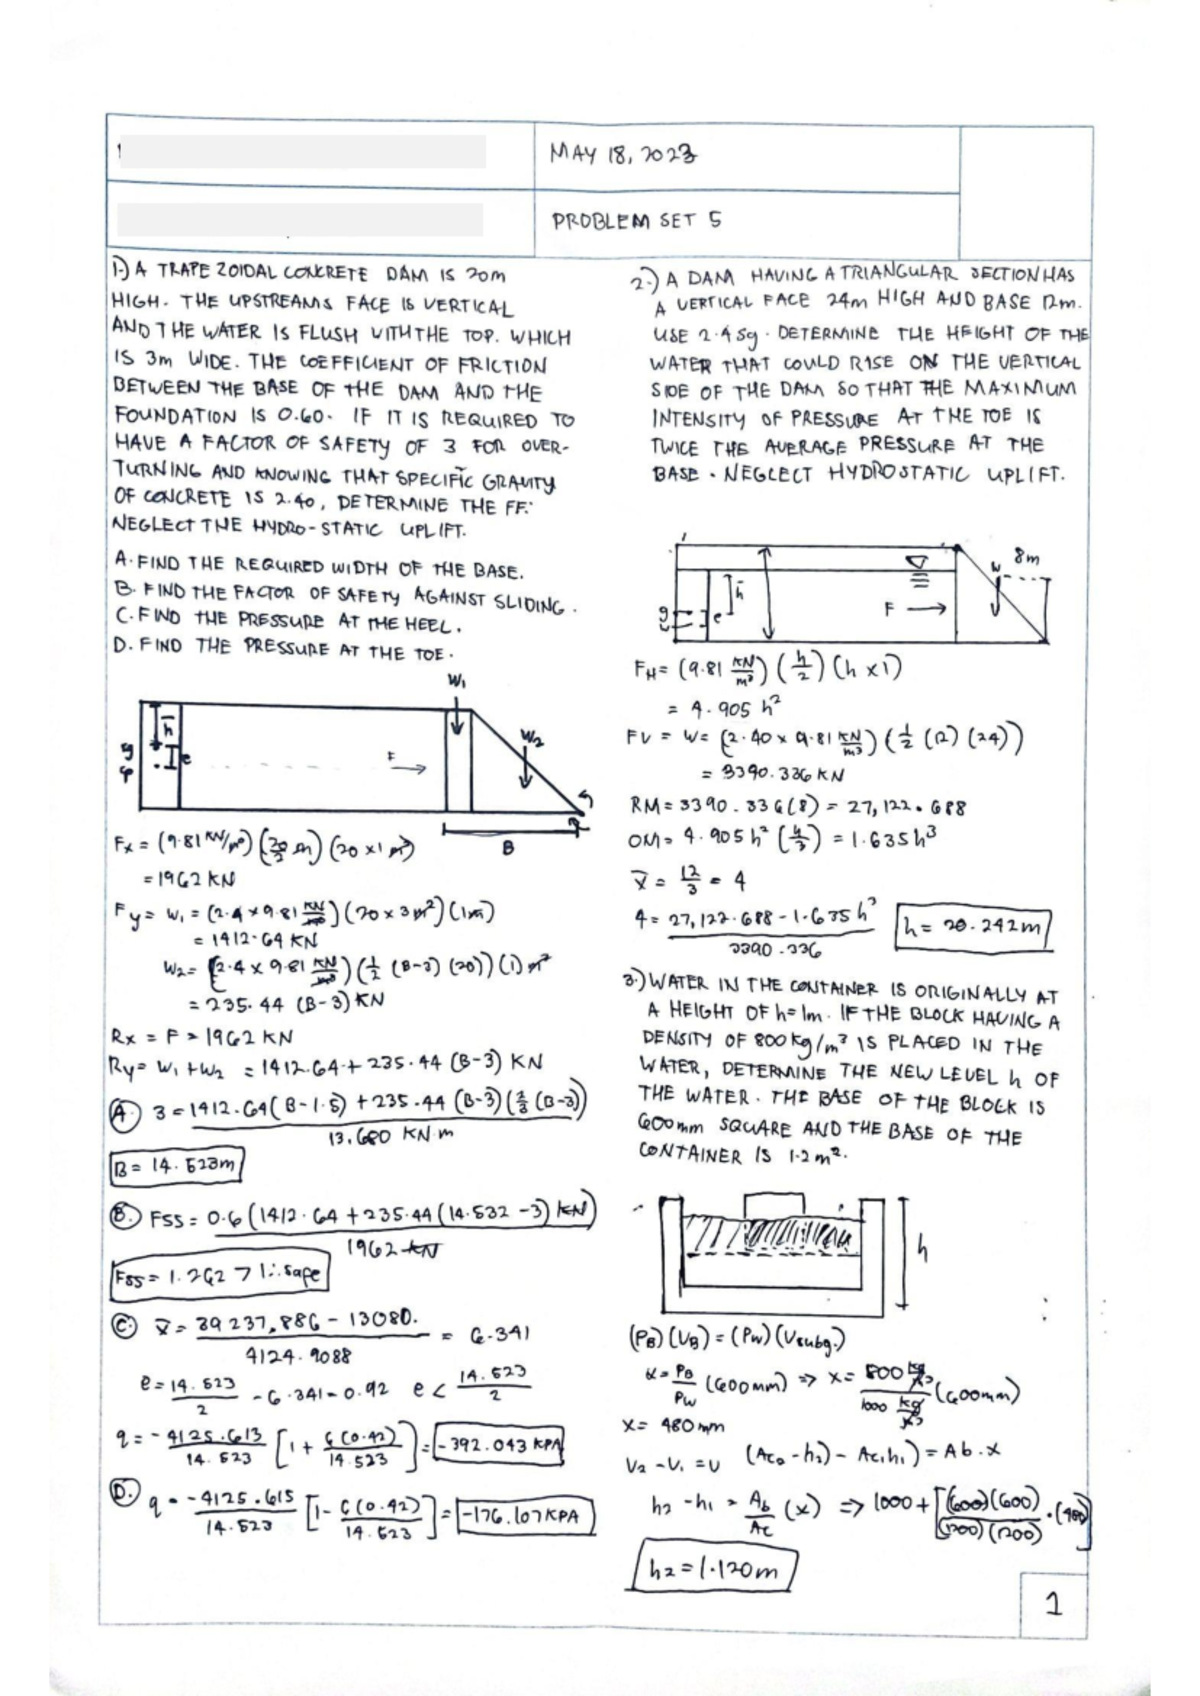 MAY 18, 2023
PROBLEM SET 5
1.) A TRAPEZOIDAL CONCRETE DAM IS 20m
HIGH. THE UPSTREAMS FACE IS VERTICAL
AND THE WATER IS FLUSH WITH THE TOP. WHICH
IS 3m WIDE. THE COEFFICIENT OF FRICTION
BETWEEN THE BASE OF THE DAM AND THE
FOUNDATION IS 0.60. IF IT IS REQUIRED TO
HAVE A FACTOR OF SAFETY OF 3 FOR OVER-
TURNING AND KNOWING THAT SPECIFIC GRAVITY
OF CONCRETE IS 2.40, DETERMINE THE FF:
NEGLECT THE HYDRO-STATIC UPLIFT.
A. FIND THE REQUIRED WIDTH OF THE BASE.
B. FIND THE FACTOR OF SAFETY AGAINST SLIDING.
C. FIND THE PRESSURE AT THE HEEL.
D. FIND THE PRESSURE AT THE TOE.
W1
W2
h̄
e
F
B
Fx = (9.81 KN/m³) (20/2 m) (20 x 1 m²)
= 1962 KN
Fy = W1 = (2.4 x 9.81 KN/m³) (20 x 3 m²) (1m)
= 1412.64 KN
W2 = (2.4 x 9.81 KN/m³) (1/2 (B-3) (20)) (1) m²
= 235.44 (B-3) KN
Rx = F = 1962 KN
Ry = W1 + W2 = 1412.64 + 235.44 (B-3) KN
A. 3 = 1412.64 (B-1.5) + 235.44 (B-3) (2/3 (B-3))
13,080 KN.m
B = 14.523m
B. FSS = 0.6 (1412.64 + 235.44 (14.532 - 3) KN)
1962 KN
FSS = 1.262 > 1 ∴ safe
C. x̄ = 39237.886 - 13080. = 6.341
4124.9088
e = 14.523/2 - 6.341 = 0.92 e < 14.523/2
q = - 4125.613/14.523 [1 + 6(0.92)/14.523] = -392.043 KPA
D. q = - 4125.615/14.523 [1 - 6(0.92)/14.523] = -176.107 KPA
2.) A DAM HAVING A TRIANGULAR SECTION HAS
A VERTICAL FACE 24m HIGH AND BASE 12m.
USE 2.4 Sg. DETERMINE THE HEIGHT OF THE
WATER THAT COULD RISE ON THE VERTICAL
SIDE OF THE DAM SO THAT THE MAXIMUM
INTENSITY OF PRESSURE AT THE TOE IS
TWICE THE AVERAGE PRESSURE AT THE
BASE. NEGLECT HYDROSTATIC UPLIFT.
8m
W
h̄
e
F
FH = (9.81 KN/m³) (h/2) (h x 1)
= 4.905 h²
FV = W = (2.40 x 9.81 KN/m³) (1/2 (12) (24))
= 3390.336 KN
RM = 3390.336 (8) = 27,122.688
OM = 4.905 h² (h/3) = 1.635 h³
x̄ = 12/3 = 4
4 = 27,122.688 - 1.635 h³
3390.336
h = 20.242 m
3.) WATER IN THE CONTAINER IS ORIGINALLY AT
A HEIGHT OF h = 1m. IF THE BLOCK HAVING A
DENSITY OF 800 kg/m³ IS PLACED IN THE
WATER, DETERMINE THE NEW LEVEL h OF
THE WATER. THE BASE OF THE BLOCK IS
600mm SQUARE AND THE BASE OF THE
CONTAINER IS 1.2 m².
h
(PB) (VB) = (PW) (Vsubg.)
x = PB/PW (600mm) ⇒ x = 800 kg/m³ / 1000 kg/m³ (600mm)
x = 480 mm
V2 - V1 = U (Ac2 - h2) - Ac1h1) = Ab . x
h2 - h1 = Ab/Ac (x) ⇒ 1000 + [(600)(600)/(1200)(1200) . (480)]
h2 = 1.120 m
1